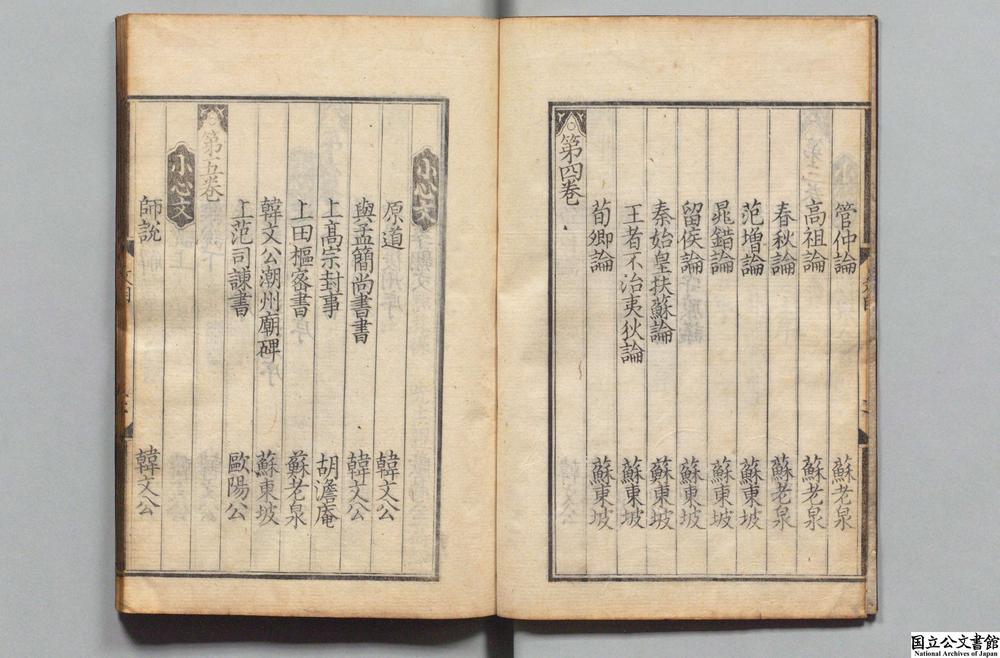 管仲論 蘇老泉
高祖論 蘇老泉
春秋論 蘇老泉
范增論 蘇東坡
鼂錯論 蘇東坡
留侯論 蘇東坡
秦始皇扶蘇論 蘇東坡
王者不治夷狄論 蘇東坡
荀卿論 蘇東坡
第四卷
小心文
原道 韓文公
與孟簡尚書書 韓文公
上高宗封事 胡澹庵
上田樞密書 蘇老泉
韓文公潮州廟碑 蘇東坡
上范司諫書 歐陽公
第五卷
小心文
師說 韓文公
国立公文書館
National Archives of Japan